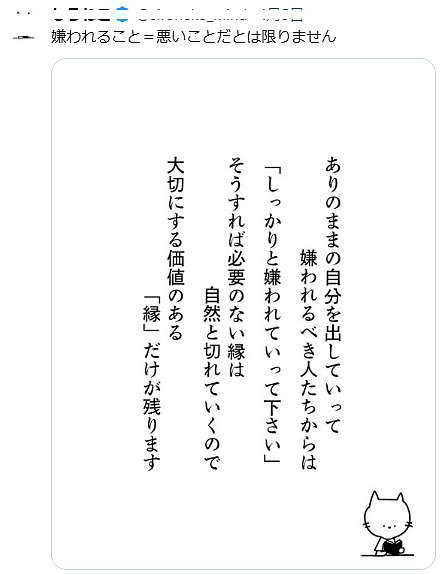 嫌われること＝悪いことだとは限りません
ありのままの自分を出していって
嫌われるべき人たちからは
「しっかりと嫌われていって下さい」
そうすれば必要のない縁は
自然と切れていくので
大切にする価値のある
「縁」だけが残ります